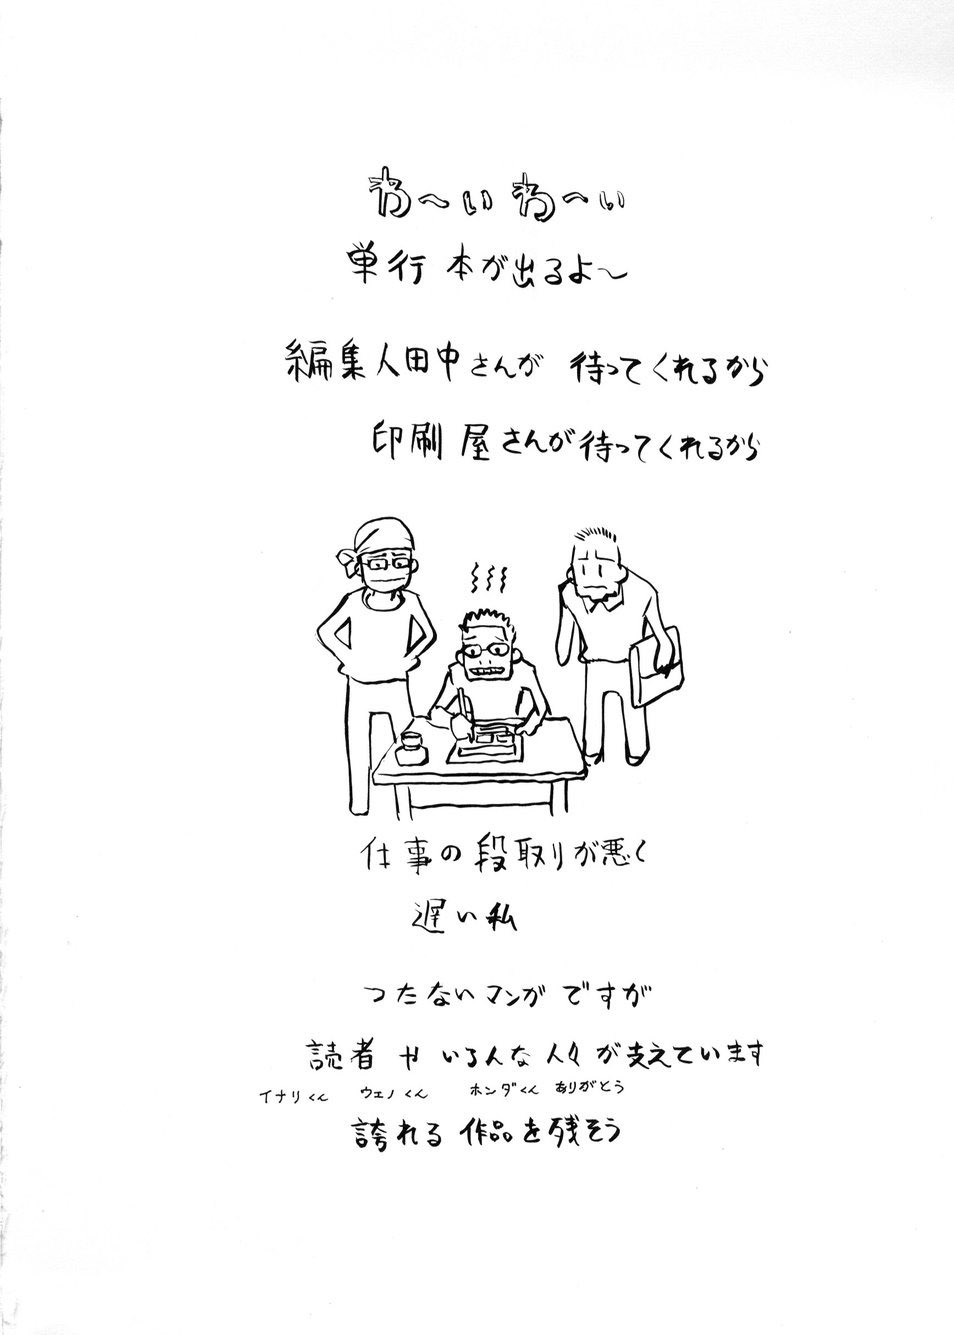 わ〜いわ〜い
単行本が出るよ〜
編集人田中さんが 待ってくれるから
印刷屋さんが待ってくれるから
仕事の段取りが悪く
遅い私
つたないマンガですが
読者やいろんな人々が支えています
イナリくん ウエノくん ホンダくん ありがとう
誇れる作品を残そう